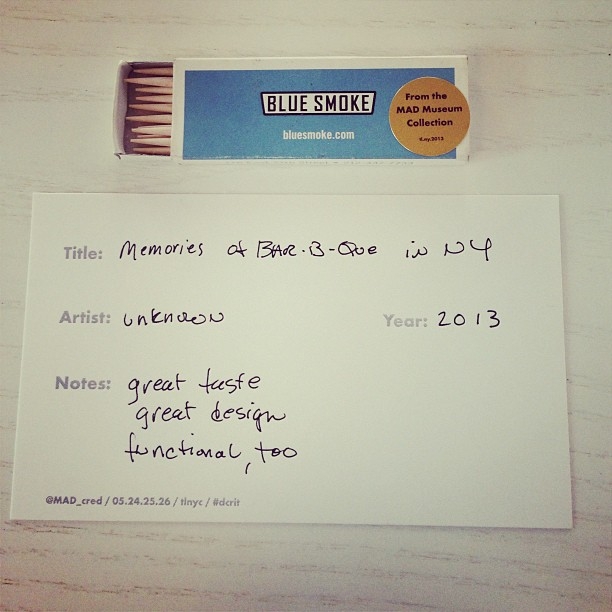 BLUE SMOKE
bluesmoke.com
From the
MAD Museum
Collection
tinyc 2013
Title: Memories of BAR-B-Que in NY
Artist: unknown
Year: 2013
Notes: great taste
great design
functional, too
@MAD_cred / 05.24.25.26 / tinyc / #dcrit